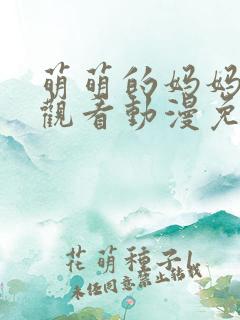 萌萌的妈妈
觀看動漫免
花萌種子l
未经同意禁止转载